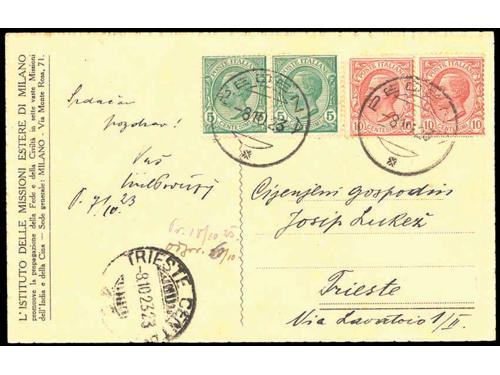 L'ISTITUTO DELLE MISSIONI ESTERE DI MILANO
promuove la propagazione della Fede e della Civiltà in sette vaste Missioni
dell'India e della Cina - Sede generale: MILANO - Via Monte Rosa, 71.
POSTE ITALIANE
5 CENTESIMI 5
POSTE ITALIANE
5
POSTE ITALIANE
10 CENTESIMI
POSTE ITALIANE
10 10
PEDENA
-8.10.23
PEDENA
-8.10.23
Srdačan
pozdrav!
Vaš
TRIESTE CENTRO
-8.10.23.23
Cijenjeni Gospodin
Josip Lukež
Trieste
Via Lavatoio 1/II.